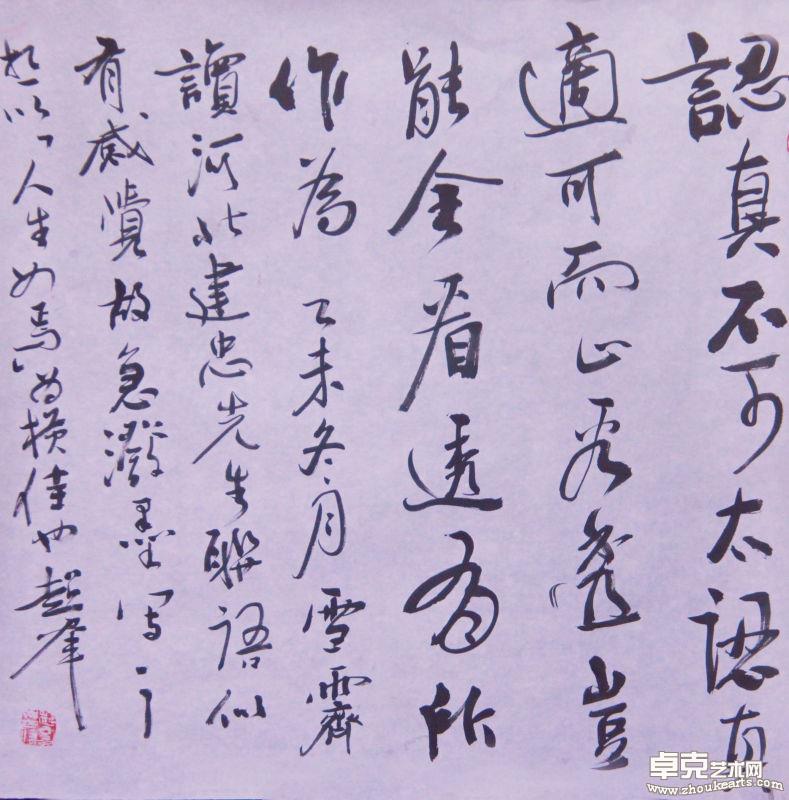 認真不可太認真
適可而止看透豈
能全看透有所
作為 乙未冬月雪霽
讀河北建忠先生聯語似
有感覺故急潑墨寫之
想以人生如焉為橫佳也超峰
卓克艺术网
www.zhoukearts.com